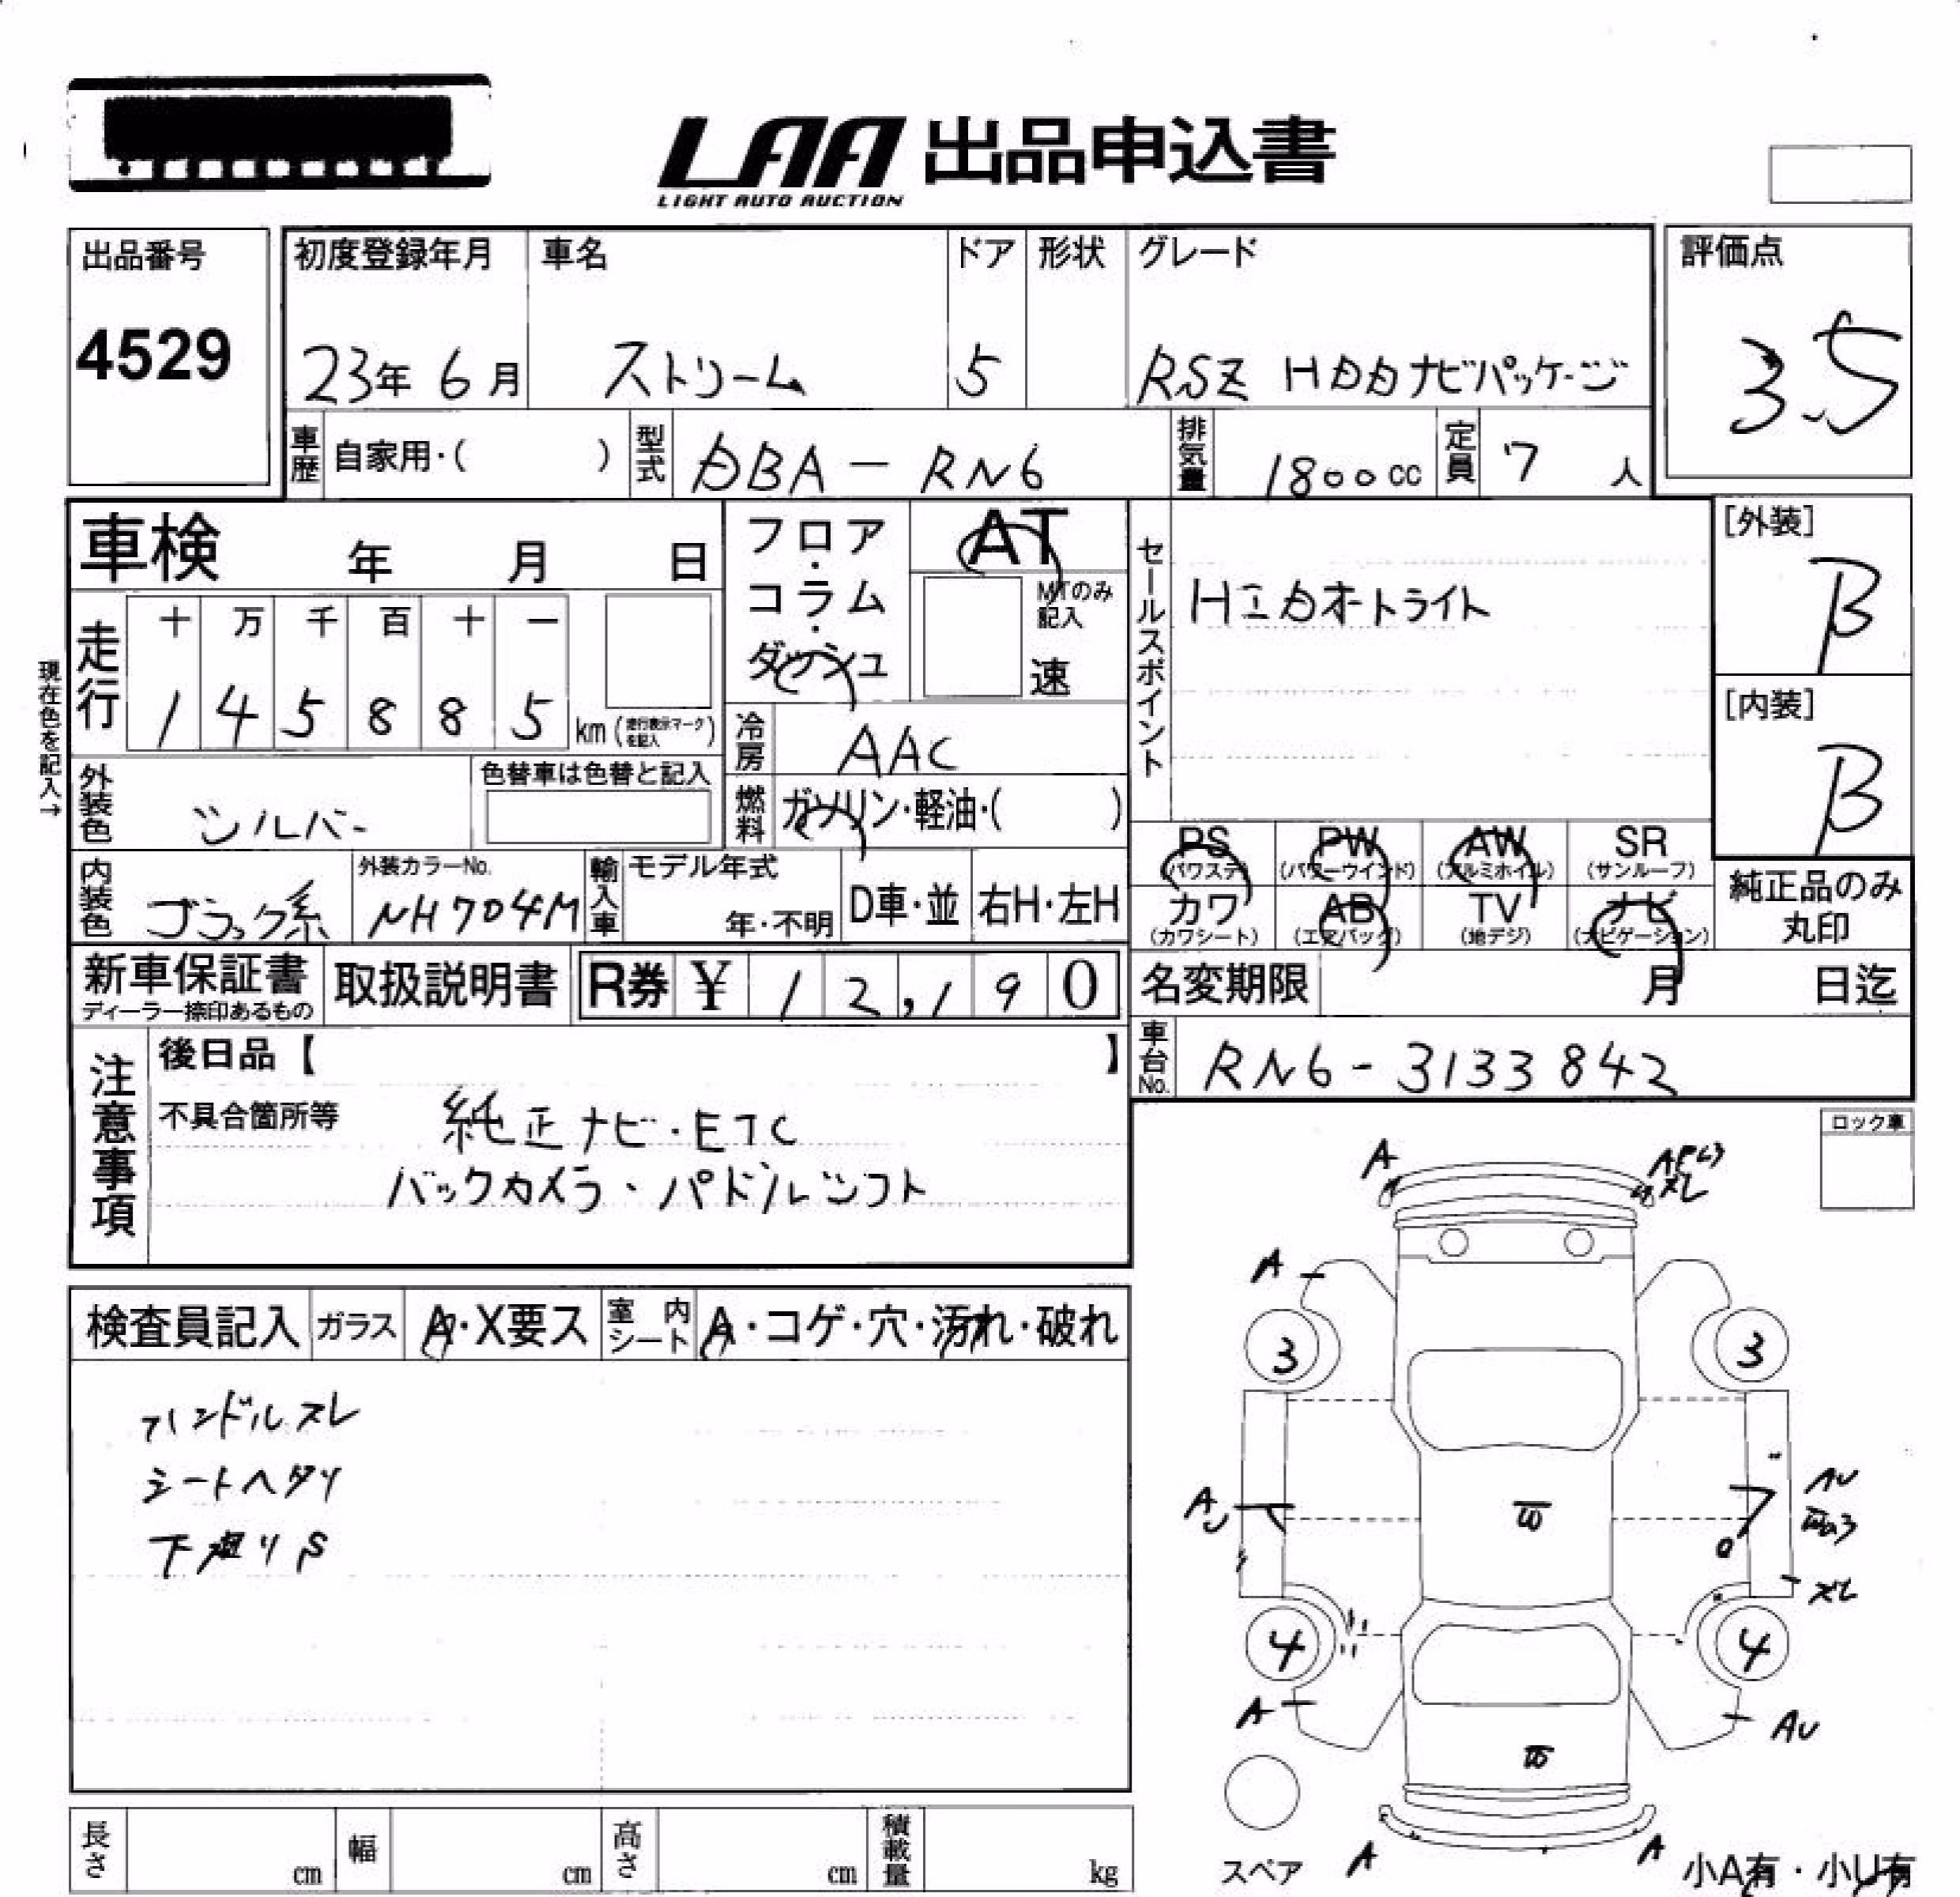 LAA 出品申込書
LIGHT AUTO AUCTION
出品番号
4529
初度登録年月 車名 ドア 形状 グレード
23年 6月 ストリーム 5 RSZ HDDナビパッケージ
評価点
3.5
車歴 自家用・( ) 型式 DBA-RN6 排気量 1800cc 定員 7人
車検 年 月 日
フロア・コラム・ダッシュ
AT
MTのみ記入
速
セールスポイント
HIDオートライト
[外装]
B
[内装]
B
走行
十 万 千 百 十 一
1 4 5 8 8 5 km (走行表示マークを記入)
現在色を記入→
冷房 AAC
外装色 シルバー 色替車は色替と記入
燃料 ガソリン・軽油・( )
PS (パワステ) PW (パワーウインド) AW (アルミホイル) SR (サンルーフ)
カワ (カワシート) AB (エアバッグ) TV (地デジ) ナビ (ナビゲーション)
純正品のみ丸印
内装色 ブラック系 外装カラーNo. NH704M 輸入車 モデル年式 年・不明 D車・並 右H・左H
新車保証書 ディーラー捺印あるもの 取扱説明書 R券 ¥ 12,190
名変期限 月 日迄
車台No. RN6-3133842
注意事項
後日品【 】
不具合箇所等 純正ナビ・ETC
バックカメラ・パドルシフト
ロック車
検査員記入 ガラス A・X要ス 室内シート A・コゲ・穴・汚れ・破れ
ハンドルスレ
シートヘタリ
下廻りS
A
スレ
A
3 3
A
AU
スレ
4 4
A
AU
スペア
A
A
小A有・小U有
長さ cm 幅 cm 高さ cm 積載量 kg